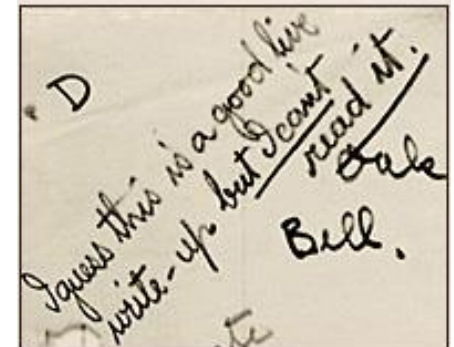 D
I guess this is a good live
write-up but I can't
read it.
Bill.